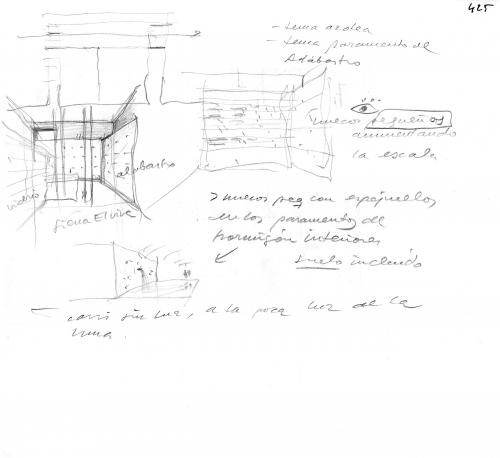 425
- tema azotea
- tema paramento de
Alabastro
huecos pequeños
aumentando
la escala
vidrio
alabastro
Sierra Elvira
> huecos peq con espejuelos
en los paramentos de
hormigón interiores
suelo incluido
casi sin luz, a la poca luz de la
luna.